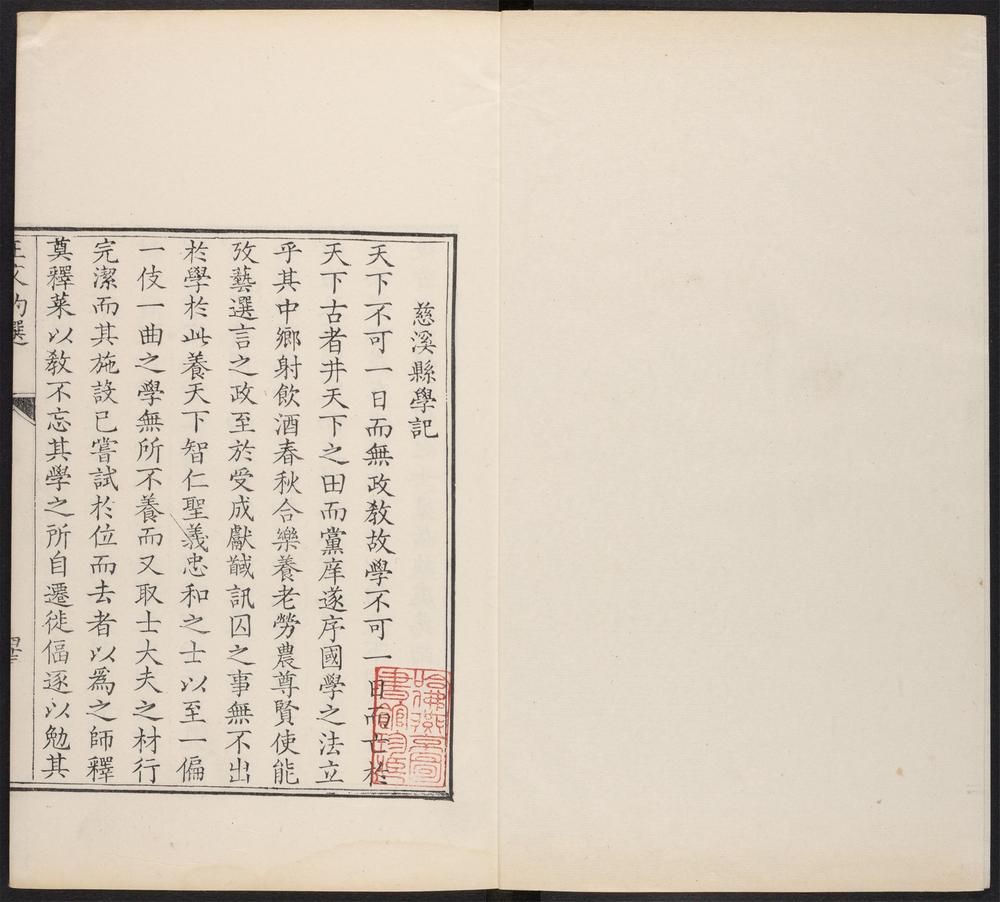 慈溪縣學記
天下不可一日而無政敎故學不可一日而亡於
天下古者井天下之田而黨庠遂序國學之法立
乎其中鄉射飲酒春秋合樂養老勞農尊賢使能
攷藝選言之政至於受成獻馘訊囚之事無不出
於學於此養天下智仁聖義忠和之士以至一偏
一伎一曲之學無所不養而又取士大夫之材行
完潔而其施設已嘗試於位而去者以爲之師釋
奠釋菜以敎不忘其學之所自遷徙偪逐以勉其
哈佛燕京圖
書館珍藏